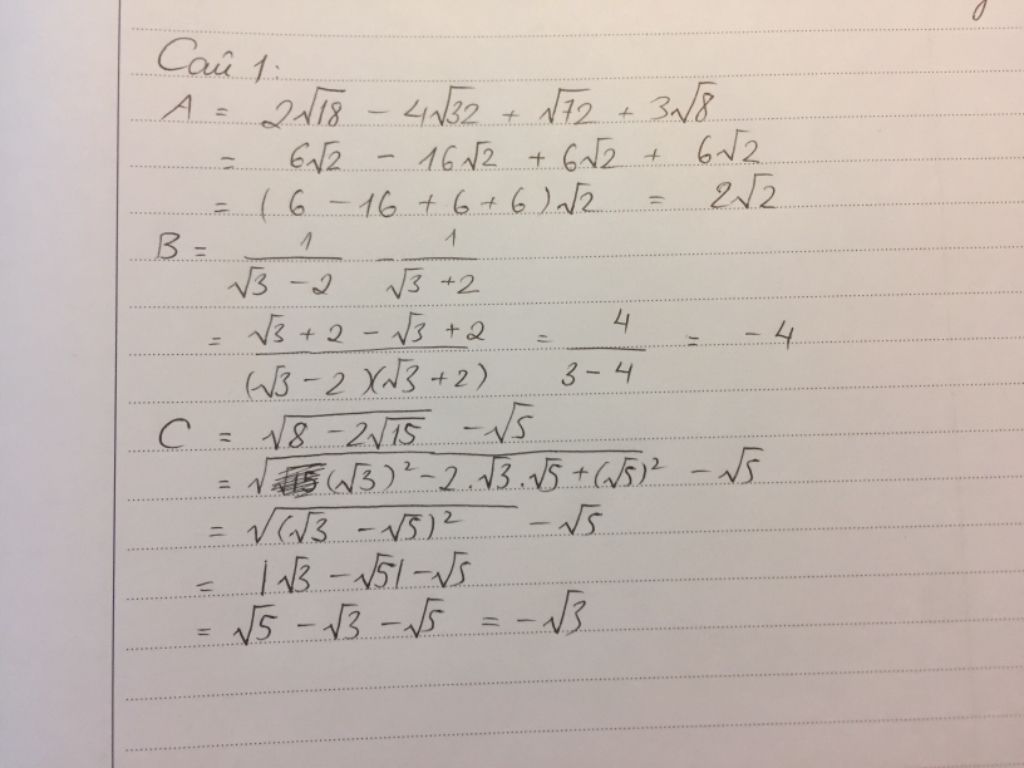 Câu 1:
A = 2√18 - 4√32 + √72 + 3√8
= 6√2 - 16√2 + 6√2 + 6√2
= (6 - 16 + 6 + 6)√2 = 2√2
B = 1/(√3 - 2) - 1/(√3 + 2)
= (√3 + 2 - √3 + 2)/((√3 - 2)(√3 + 2)) = 4/(3 - 4) = -4
C = √(8 - 2√15) - √5
= √((√3)² - 2.√3.√5 + (√5)²) - √5
= √((√3 - √5)²) - √5
= |√3 - √5| - √5
= √5 - √3 - √5 = -√3